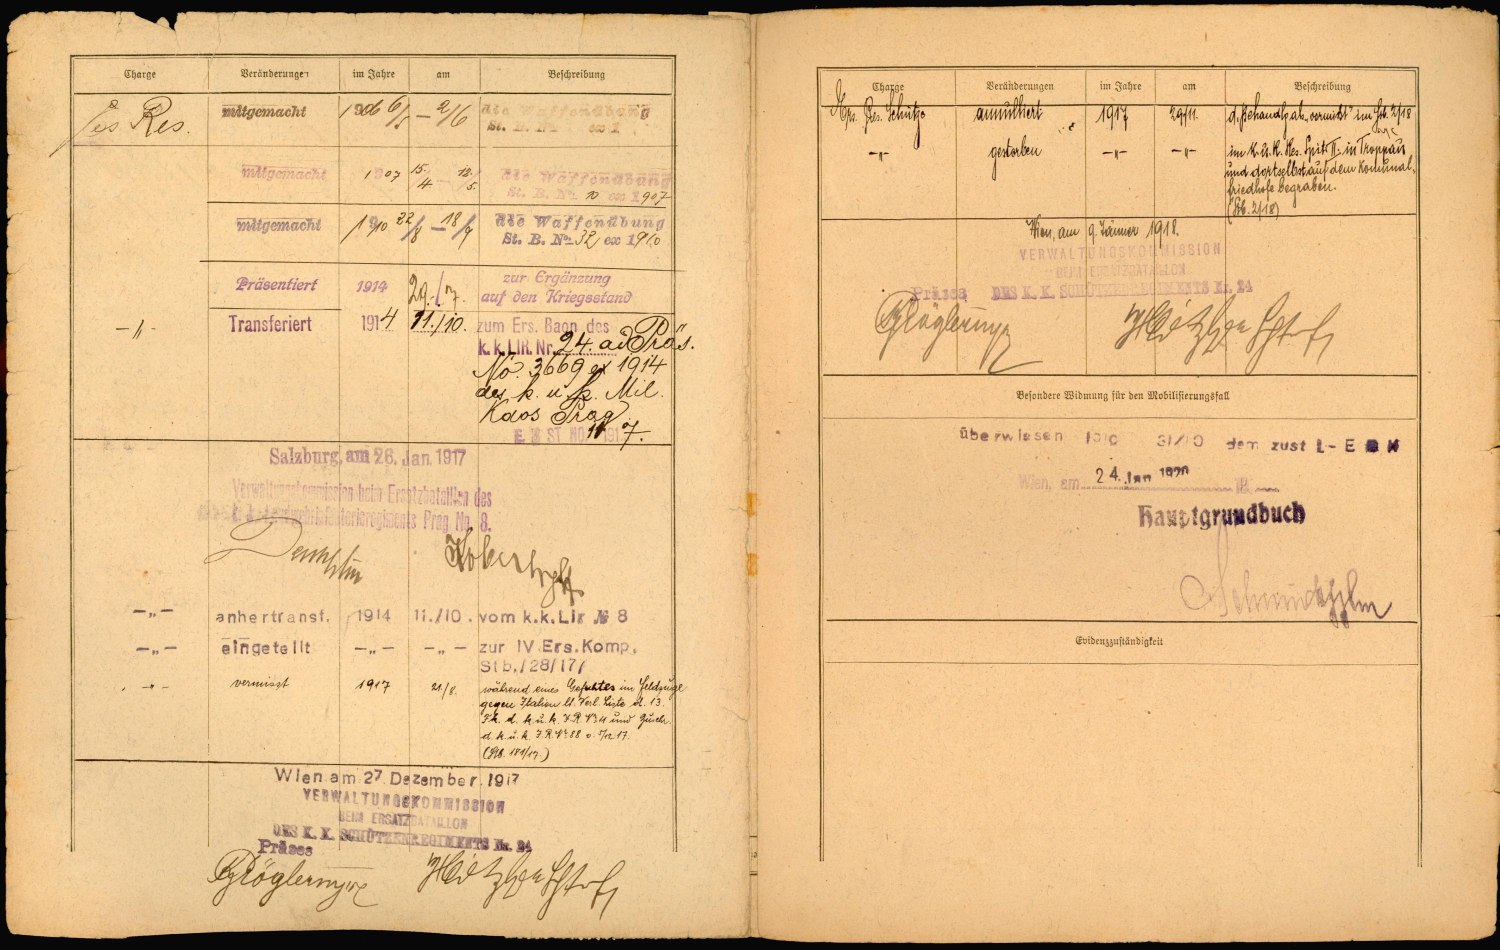 Charge Veränderungen im Jahre am Beschreibung
Res. mitgemacht 1906 6/5 – 2/6 die Waffenübung
St. B. ex 1
mitgemacht 1907 15./4 – 12./5. die Waffenübung
St. B. No. 10 ex 1907
mitgemacht 1910 22/8 – 18/9 die Waffenübung
St. B. No. 32 ex 1910
Präsentiert 1914 29./7. zur Ergänzung
auf den Kriegsstand
–„– Transferiert 1914 11./10. zum Ers. Baon des
k. k. LIR. Nr. 24. ad Präs.
No. 3669 ex 1914
des k. u. k. Mil.
Kdos Prag.
E. ST NO. 11 1917.
Salzburg, am 26. Jan. 1917
Verwaltungskommission beim Ersatzbataillon des
k. k. Landwehrinfanterieregiments Prag No. 8.
–„– anhertransf. 1914 11./10. vom k.k. Lir № 8
–„– eingeteilt –„– –„– zur IV Ers. Komp.
Stb. /28/17/
–„– vermisst 1917 21/8. während eines Gefechtes im Feldzuge
gegen Italien lt. Verl. Liste d. 13.
Fk. d. k. u. k. I. R. No 11 und Zuschr.
d. k. u. k. I. R. No 88 v. 5/12 17.
Wien am 27 Dezember 1917
VERWALTUNGSKOMMISSION
BEIM ERSATZBATAILLON
DES K. K. SCHÜTZENREGIMENTS Nr. 24
Präses
Charge Veränderungen im Jahre am Beschreibung
Ers. Res. Schütze annulliert 1917 29/11. d. Behandlg. als „vermißt" im Stb. 2/18
–„– gestorben –„– –„– im k. u. k. Res. Spit. II. in Troppau
und dortselbst auf dem Kommunal-
friedhofe begraben.
(Stb. 2/18)
Wien, am 9. Jänner 1918.
VERWALTUNGSKOMMISSION
BEIM ERSATZBATAILLON
Präses DES K. K. SCHÜTZENREGIMENTS Nr. 24
Besondere Widmung für den Mobilisierungsfall
überwiesen 31/10 dem zust L-E
Wien, am 24. Jan 1920
Hauptgrundbuch
Evidenzzuständigkeit